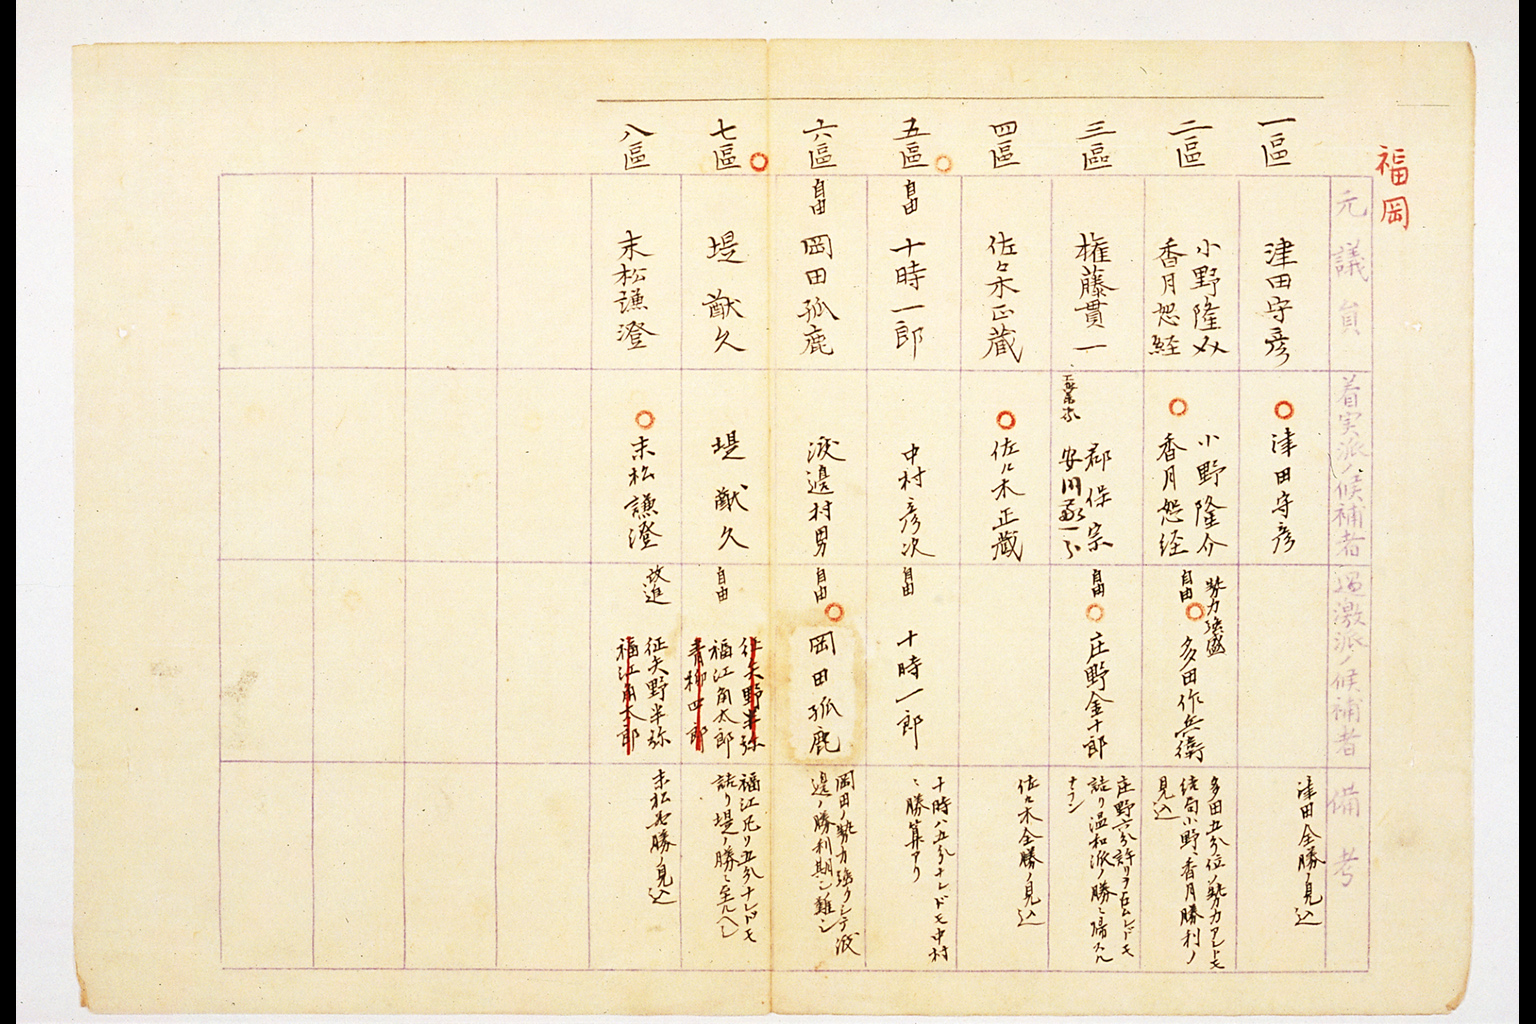 福岡
元議員
着実派ノ候補者
過激派ノ候補者
備考
一區
津田守彦
津田守彦
津田全勝ノ見込
二區
小野隆助
香月恕経
小野隆介
香月恕経
勢力強盛
自由
多田作兵衛
多田五分位ノ勢力アレドモ
結局小野、香月勝利ノ
見込
三區
権藤貫一
郡保宗
安川敬一郎
自由
庄野金十郎
庄野六分許リヲ占ムレドモ
詰リ温和派ノ勝ニ帰スル
ナラン
四區
佐々木正蔵
佐々木正蔵
佐々木全勝ノ見込
五區
自由
十時一郎
中村彦次
自由
十時一郎
十時ハ五分ナレドモ中村
ニ勝算アリ
六區
自由
岡田孤鹿
渡邊村男
自由
岡田孤鹿
岡田ノ勢力強クシテ渡
邊ノ勝利期シ難シ
七區
堤猷久
堤猷久
自由
征矢野半弥
福江角太郎
青柳四郎
福江凡ソ五分ナレドモ
詰リ堤ノ勝ニ至ルヘシ
八區
末松謙澄
末松謙澄
改進
征矢野半弥
福江角太郎
末松全勝ノ見込